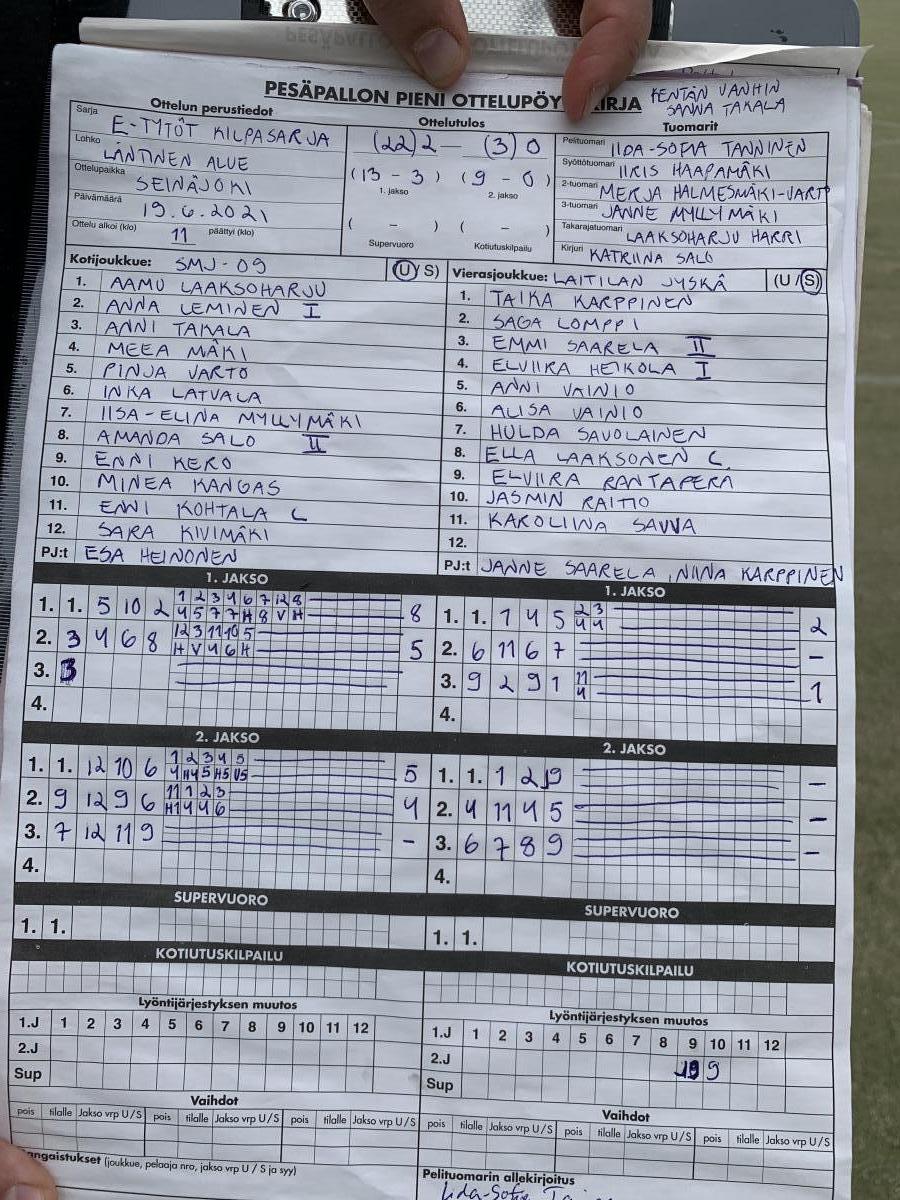 PESÄPALLON PIENI OTTELUPÖY KIRJA
KENTÄN VANHIN
SANNA TAKALA
Ottelun perustiedot
Ottelutulos
Tuomarit
Sarja E-TYTÖT KILPASARJA
Lohko LÄNTINEN ALUE
Ottelupaikka SEINÄJOKI
Päivämäärä 19.6.2021
Ottelu alkoi (klo) 11 päättyi (klo)
(22) 2 — (3) 0
(13 - 3) (9 - 0)
1. jakso 2. jakso
( - ) ( - )
Supervuoro Kotiutuskilpailu
Pelituomari IIDA-SOFIA TANNINEN
Syöttötuomari IIRIS HAAPAMÄKI
2-tuomari MERJA HALMESMÄKI-VARTO
3-tuomari JANNE MYLLYMÄKI
Takarajatuomari LAAKSOHARJU HARRI
Kirjuri KATRIINA SALO
Kotijoukkue: SMJ-09 (U/S)
1. AAMU LAAKSOHARJU
2. ANNA LEMINEN I
3. ANNI TAKALA
4. MEEA MÄKI
5. PINJA VARTO
6. INKA LATVALA
7. IISA-ELINA MYLLYMÄKI
8. AMANDA SALO II
9. ENNI KERO
10. MINEA KANGAS
11. ENNI KOHTALA C
12. SARA KIVIMÄKI
PJ:t ESA HEINONEN
Vierasjoukkue: LAITILAN JYSKÄ (U/S)
1. TAIKA KARPPINEN
2. SAGA LOMPPI
3. EMMI SAARELA II
4. ELVIIRA HEIKOLA I
5. ANNI VAINIO
6. ALISA VAINIO
7. HULDA SAVOLAINEN
8. ELLA LAAKSONEN C
9. ELVIIRA RANTAPERA
10. JASMIN RAITIO
11. KAROLIINA SAVVA
12.
PJ:t JANNE SAARELA, NIINA KARPPINEN
1. JAKSO
1. 1. 5 10 2 1 2 3 4 6 7 12 8 8
4 5 7 7 H 8 V H
2. 3 4 6 8 12 3 11 10 5 5
H V 4 6 H
3. 3
4.
1. JAKSO
1. 1. 7 4 5 2 3 2
4 4
2. 6 11 6 7 –
3. 9 2 9 1 11 1
4
4.
2. JAKSO
1. 1. 12 10 6 1 2 3 4 5 5
4 H4 5 H5 V5
2. 9 12 9 6 11 1 2 3 4
H1 4 4 6
3. 7 12 11 9 –
4.
2. JAKSO
1. 1. 1 2 9 –
2. 4 11 4 5 –
3. 6 7 8 9 –
4.
SUPERVUORO
1. 1.
SUPERVUORO
1. 1.
KOTIUTUSKILPAILU
KOTIUTUSKILPAILU
Lyöntijärjestyksen muutos
1.J 1 2 3 4 5 6 7 8 9 10 11 12
2.J
Sup
Lyöntijärjestyksen muutos
1.J 1 2 3 4 5 6 7 8 9 10 11 12
2.J 10 9
Sup
Vaihdot
pois tilalle Jakso vrp U/S pois tilalle Jakso vrp U/S pois tilalle Jakso vrp U/S
Vaihdot
pois tilalle Jakso vrp U/S pois tilalle Jakso vrp U/S pois tilalle Jakso vrp U/S
angaistukset (joukkue, pelaaja nro, jakso vrp U / S ja syy)
Pelituomarin allekirjoitus
Iida-Sofia